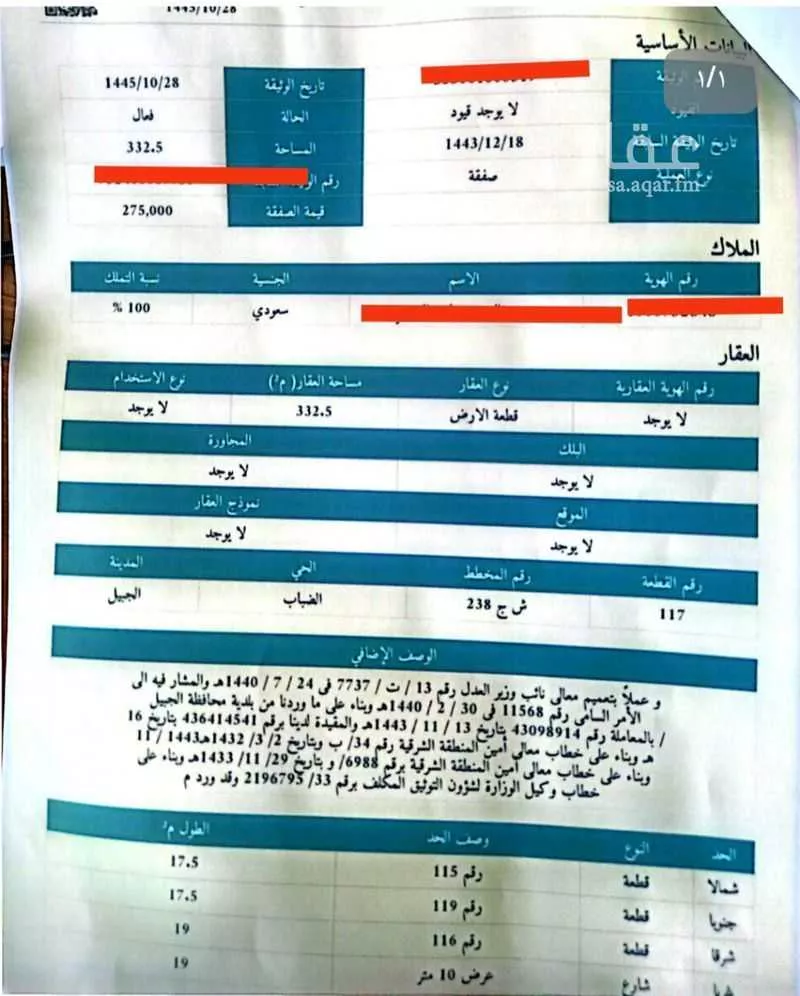 1445/10/28
البيانات الأساسية
تاريخ الوثيقة 1445/10/28
القيود لا يوجد قيود الحالة فعال
تاريخ الوثيقة السابقة 1443/12/18 المساحة 332.5
نوع العملية صفقة
قيمة الصفقة 275,000
١/١
عقار
sa.aqar.fm
الملاك
رقم الهوية الاسم الجنسية نسبة التملك
سعودي 100 %
العقار
رقم الهوية العقارية نوع العقار مساحة العقار( م²) نوع الاستخدام
لا يوجد قطعة الارض 332.5 لا يوجد
البلك المجاورة
لا يوجد لا يوجد
الموقع نموذج العقار
لا يوجد لا يوجد
رقم القطعة رقم المخطط الحي المدينة
117 ش ج 238 الضباب الجبيل
الوصف الإضافي
و عملاً بتعميم معالى نائب وزير العدل رقم 13 / ت / 7737 فى 24 / 7 / 1440هـ والمشار فيه الى
الأمر السامى رقم 11568 فى 30 / 2 / 1440هـ وبناء على ما وردنا من بلدية محافظة الجبيل
/ بالمعاملة رقم 43098914 بتاريخ 13 / 11 / 1443هـ والمقيدة لدينا برقم 436414541 بتاريخ 16
هـ وبناء على خطاب معالى أمين المنطقة الشرقية رقم 34/ ب وبتاريخ 2/ 3/ 1432هـ1443 / 11
وبناء على خطاب معالى أمين المنطقة الشرقية برقم 6988/ و بتاريخ 29/ 11/ 1433هـ وبناء على
خطاب وكيل الوزارة لشؤون التوثيق المكلف برقم 33/ 2196795 وقد ورد م
الحد النوع وصف الحد الطول م²
شمالا قطعة رقم 115 17.5
جنوبا قطعة رقم 119 17.5
شرقا قطعة رقم 116 19
غربا شارع عرض 10 متر 19